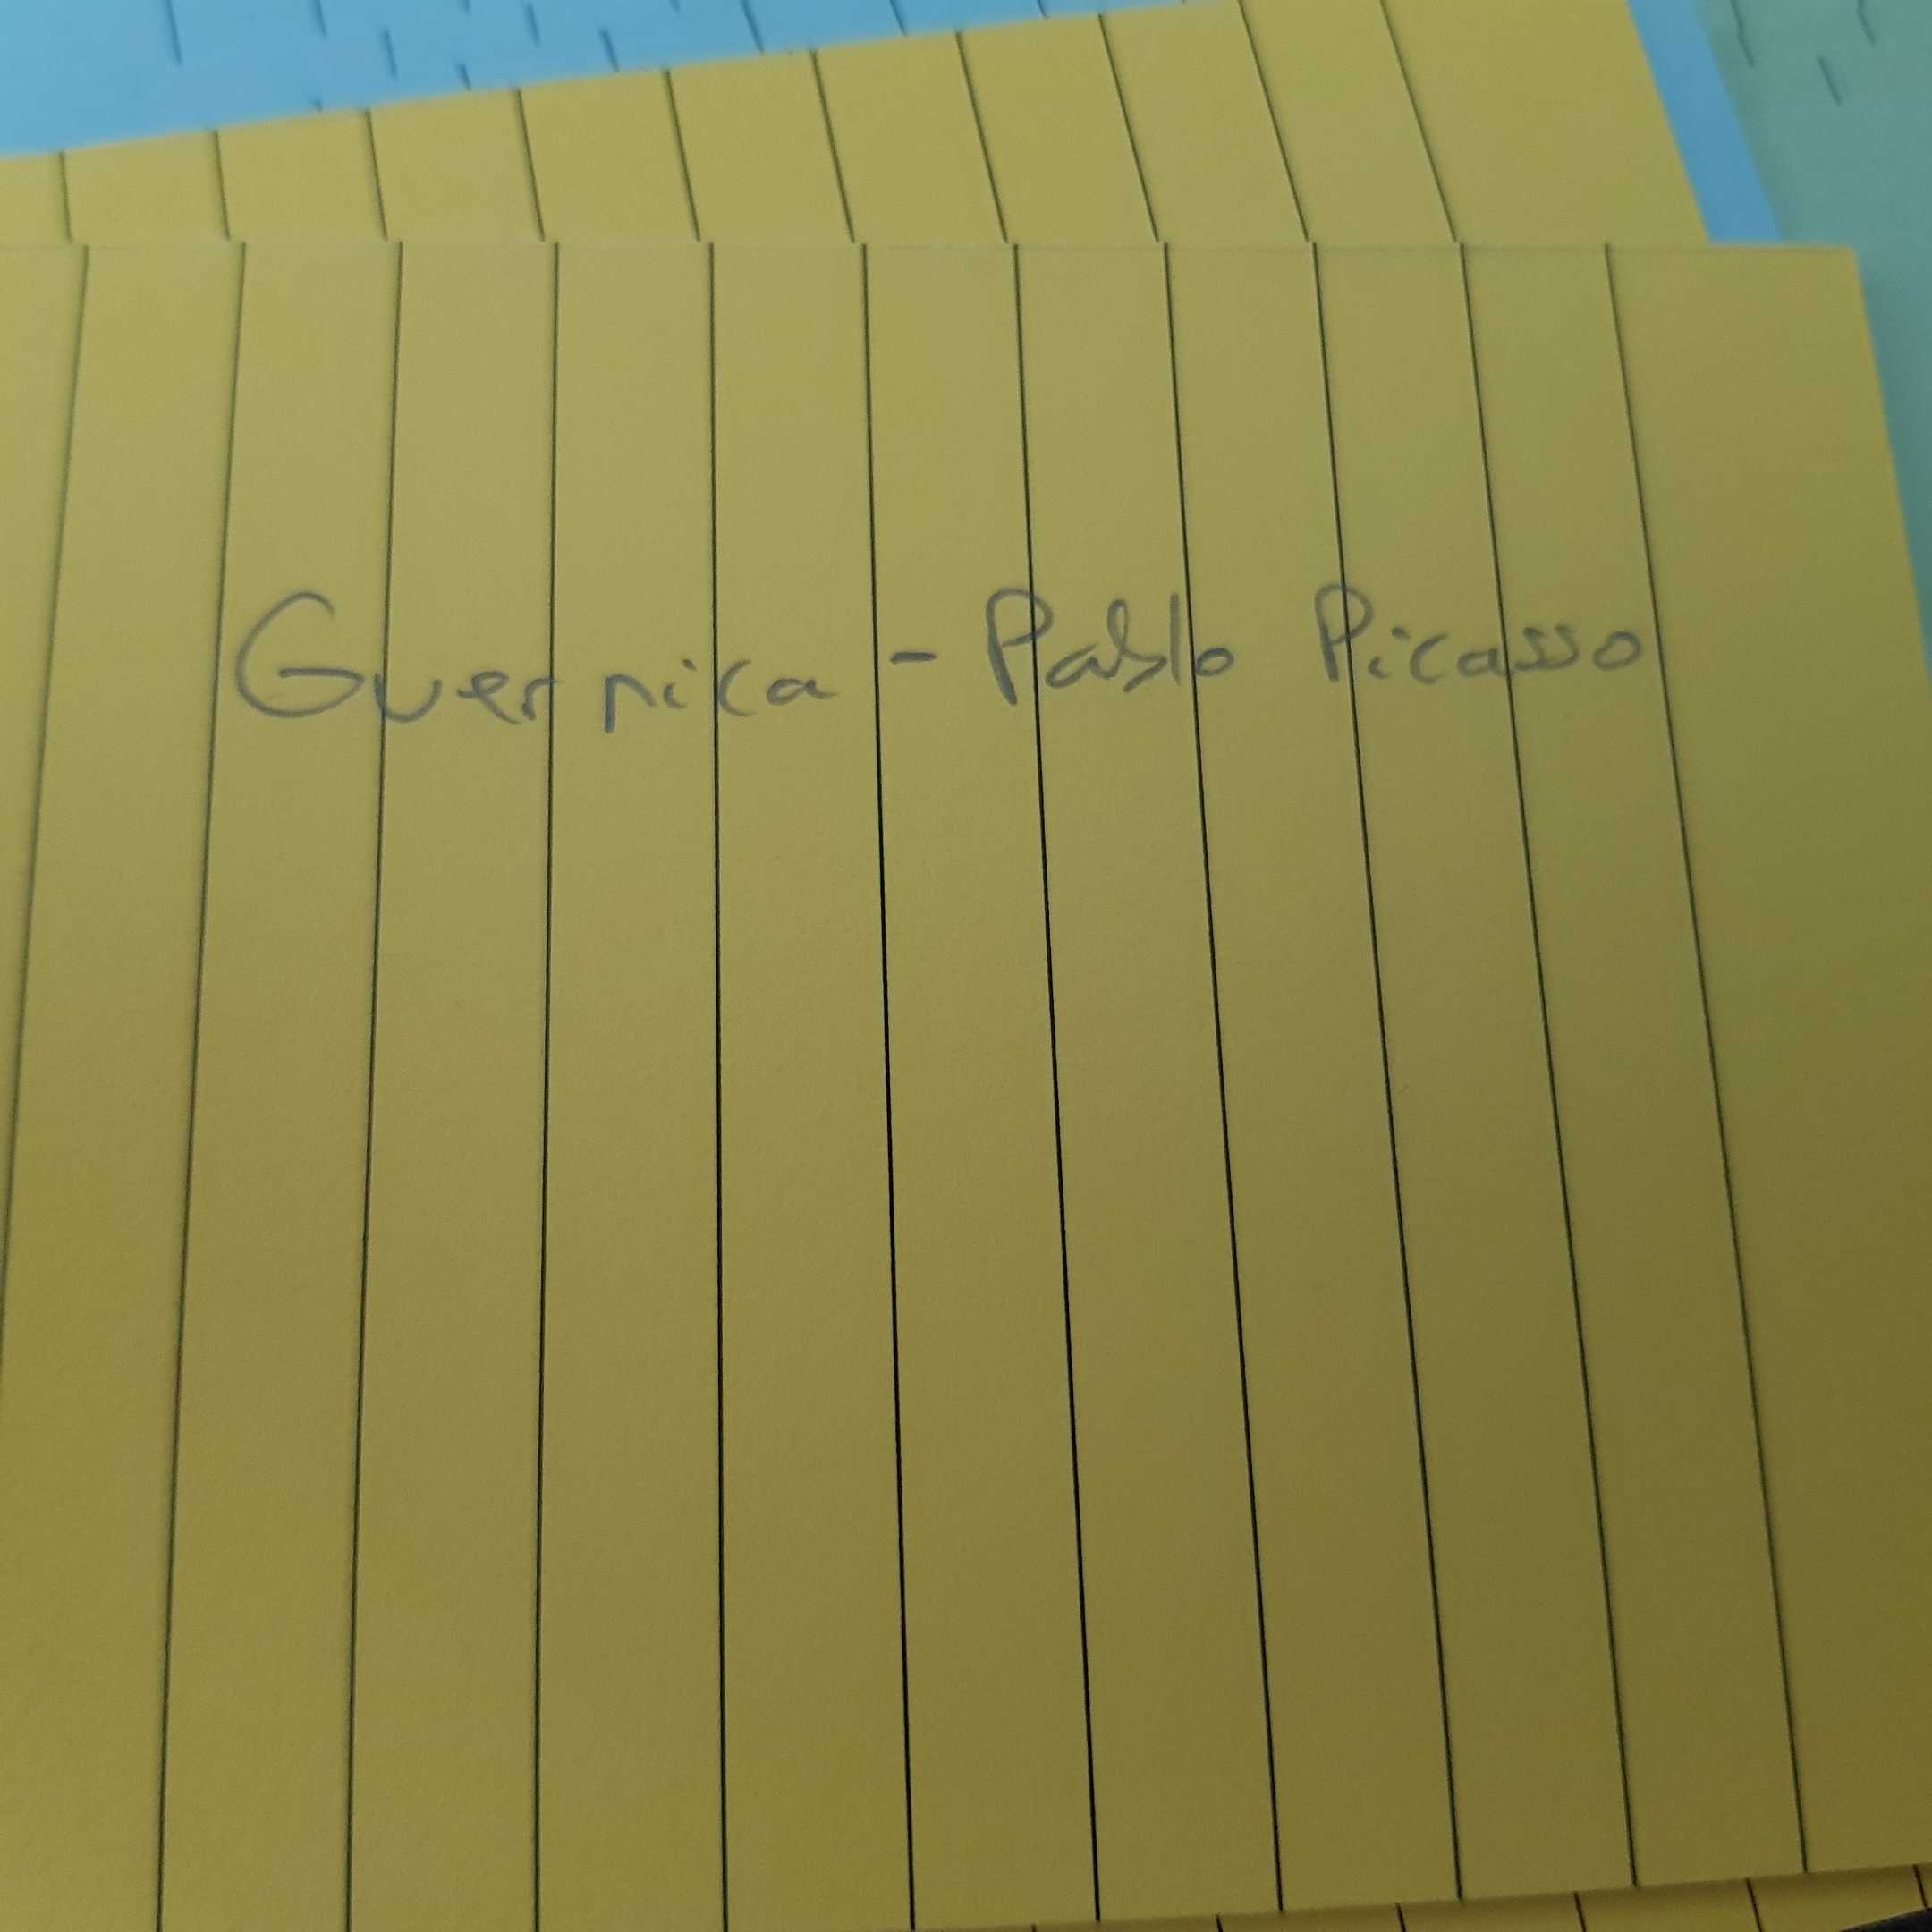 Guernica - Pablo Picasso